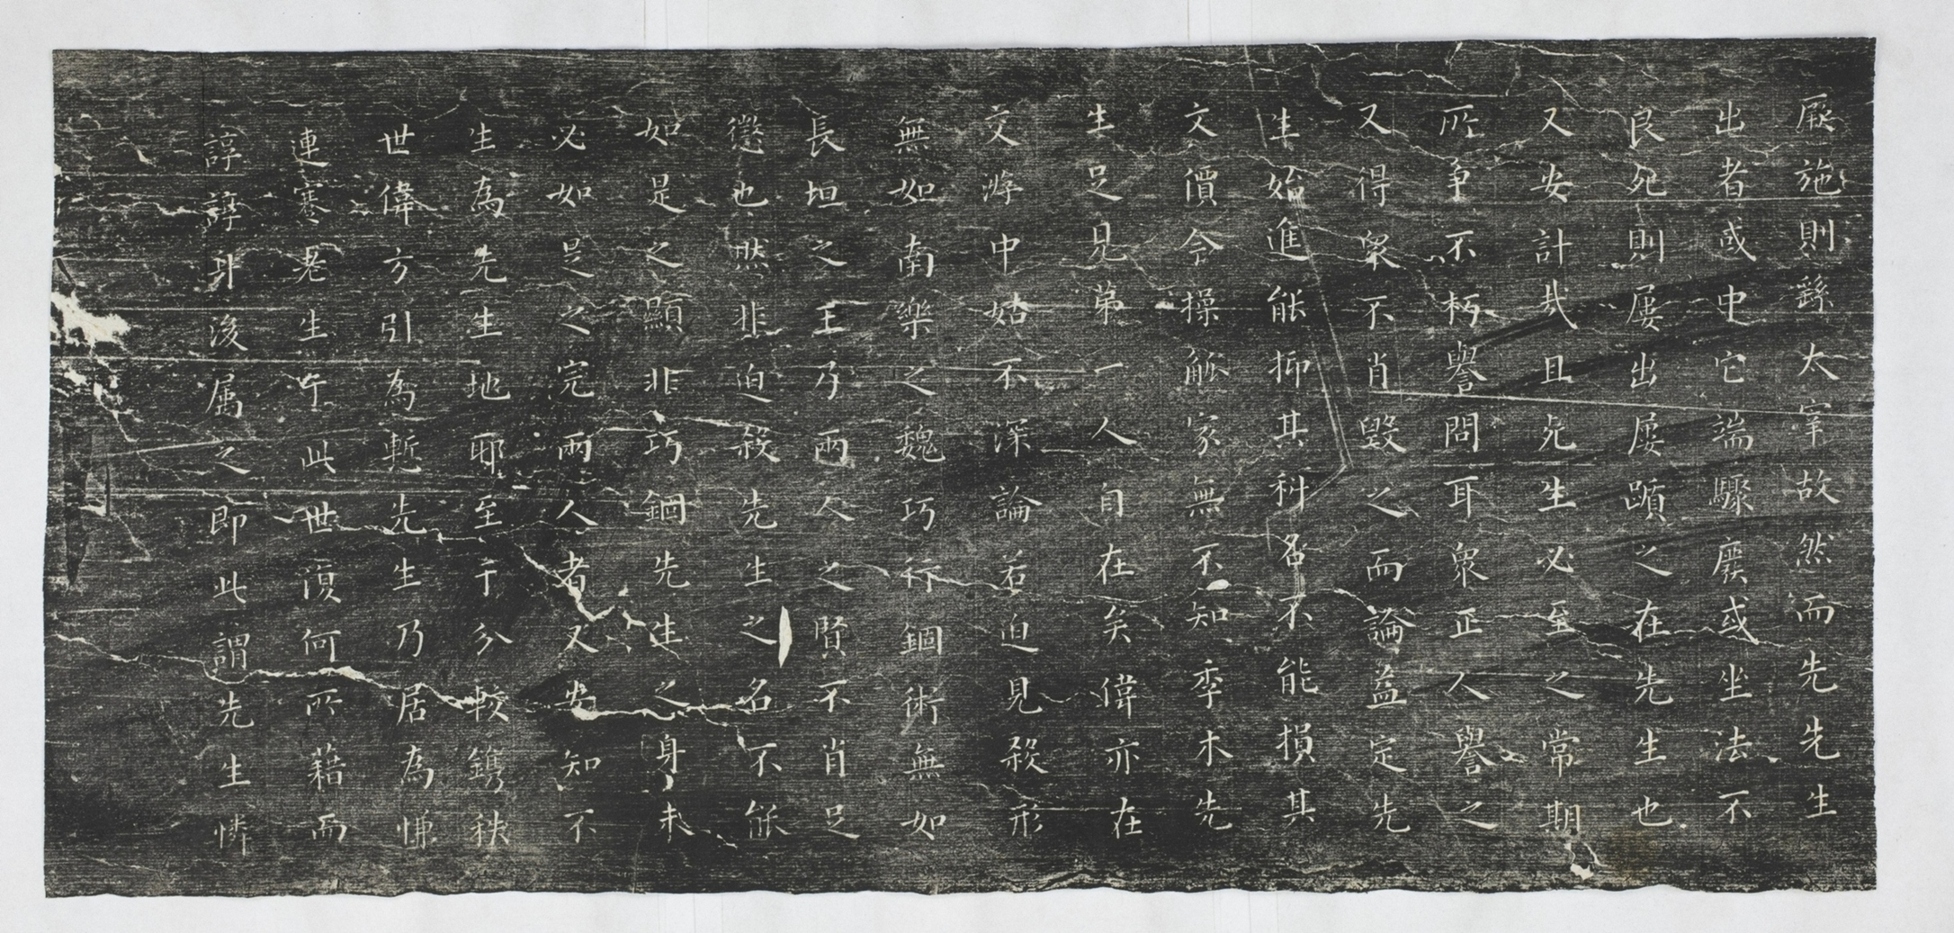 厥施則繇太宰故然而先先生
出者或中它端驟廢或坐法不
良死則屢出屢躓之在先生也
又安計哉且先生必至之常期
所爭不朽譽問耳衆正人譽之
又得衆不肖毀之而論益定先
生始進能抑其科名不能損其
文價今操觚家無不知季木先
生足見第一人自在矣偉亦在
文游中姑不深論若迫見殺形
無如南樂之魏巧行錮術無如
長垣之王乃兩人之賢不肖足
懲也然非迫殺先生之名不能
如是之顯非巧錮先生之身未
必如是之完兩人者又安知不
生為先生地耶至于分較鐫秩
世偉方引為慙先生乃居為慊
連蹇老生乍此世湏何所藉而
諄諄身後属之即此謂先生憐